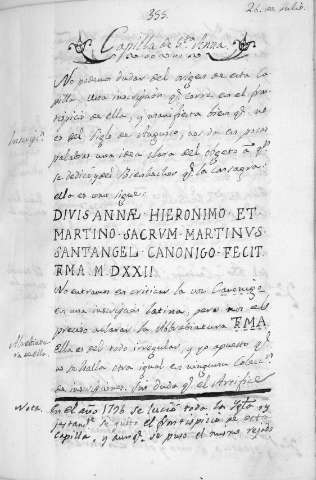 355.
26. de Julio.
Capilla de Sta. Anna.
No podemos dudar del origen de esta Ca
pilla. Una inscripción q.e corre en el fron
tispicio de ella, y manifiesta bien q.e no
es del Siglo de Augusto, nos da en pocas
palabras una idea clara del objeto a q.e
se dedicó, y del Bienhechor q.e la consagra:
ella es como sigue:
Inscripc.n
DIVIS ANNÆ HIERONIMO ET
MARTINO SACRUM MARTINUS
SANTANGEL CANONIGO FECIT
TRMA M DXXII.
No entramos en criticar la voz Canonigo
en una inscripcion latina, pero nos es
preciso aclarar la Abbreviatura TRMA
ella es del todo irregular, y yo apuesto q.e
no se halla otra igual en ninguna Colecc.n
de inscripciones. Sin duda q.e el Artifice
Nota.
En el año 1796 se lució toda la Iglesia
de gusto el frontispicio de esta
Capilla, y aunq.e se puso el mismo rejado